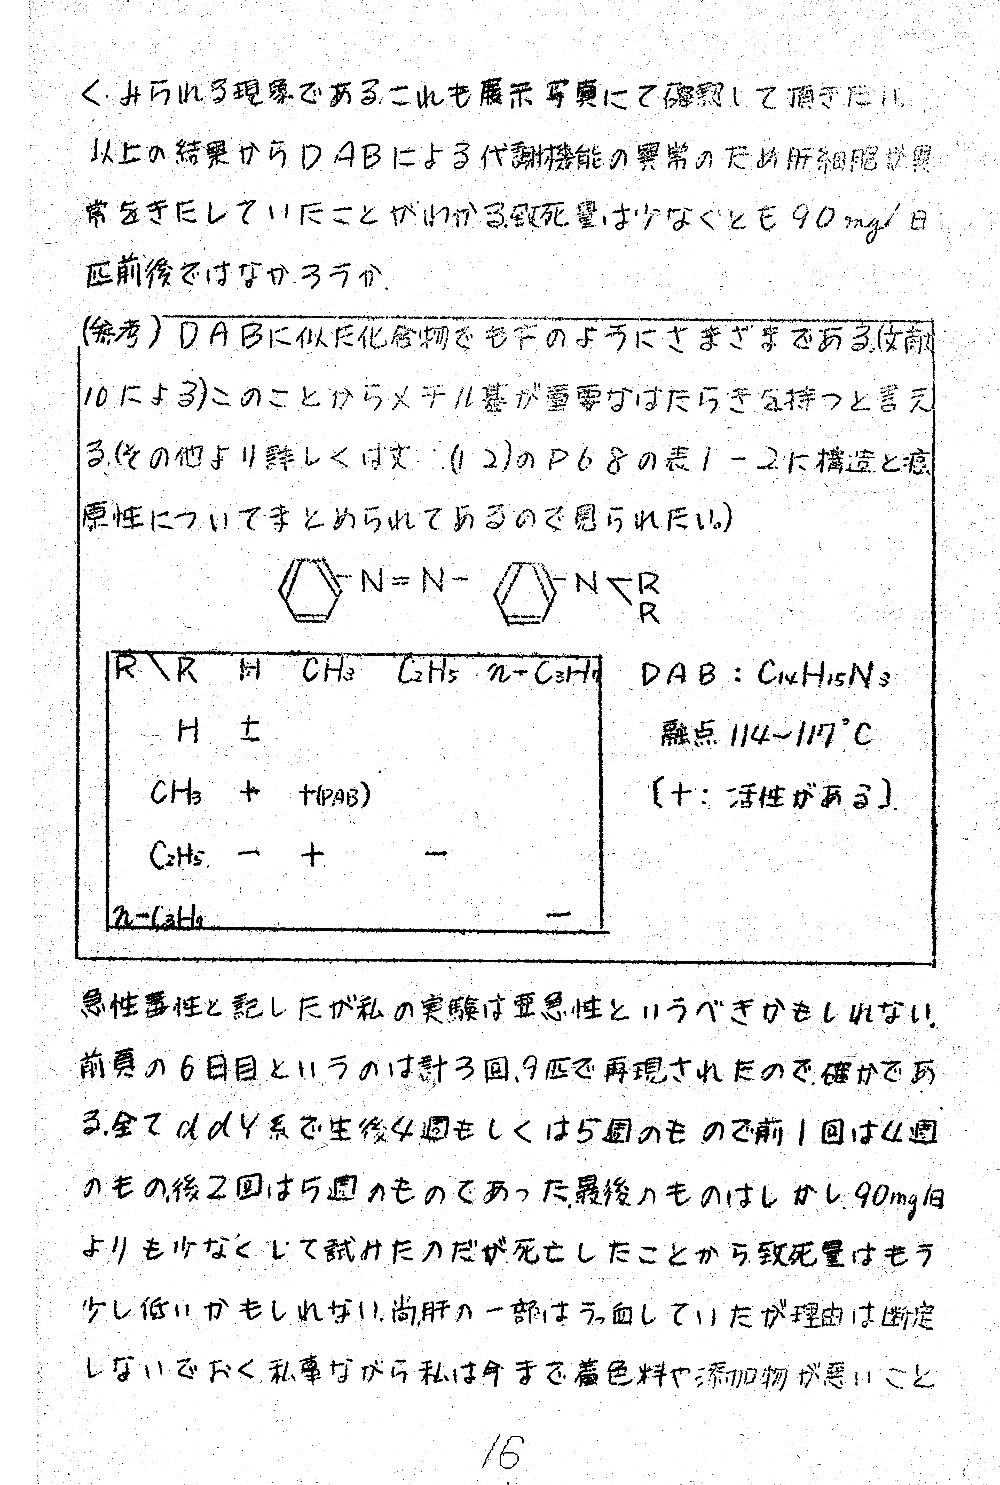 くみられる現象である.これも展示写真にて確認して頂きたい.
以上の結果からDABによる代謝機能の異常のため肝細胞が異
常をきたしていたことがわかる.致死量は少なくとも90mg/日
匹前後ではなかろうか.
(参考)DABに似た化合物でも下のようにさまざまである.(文献
10による)このことからメチル基が重要なはたらきを持つと言え
る.(その他より詳しくは文 (12)のP68の表1-2に構造と癌
原性についてまとめられてあるので見られたい。)
N=N- -N R
R
R\R H CH3 C2H5 n-C3H7 DAB:C14H15N3
H ± 融点114~117°C
CH3 + +(DAB) [+:活性がある]
C2H5 - + -
n-C3H7 -
急性毒性と記したが私の実験は亜急性というべきかもしれない.
前頁の6日目というのは計3回,9匹で再現されたので,確かであ
る.全てddY系で生後4週もしくは5週のもので前1回は4週
のもの,後2回は5週のものであった.最後のものはしかし,90mg/日
よりも少なくして試みたのだが死亡したことから致死量はもう
少し低いかもしれない.尚,肝の一部はうっ血していたが理由は断定
しないでおく.私事ながら私は今まで着色料や添加物が悪いこと
16